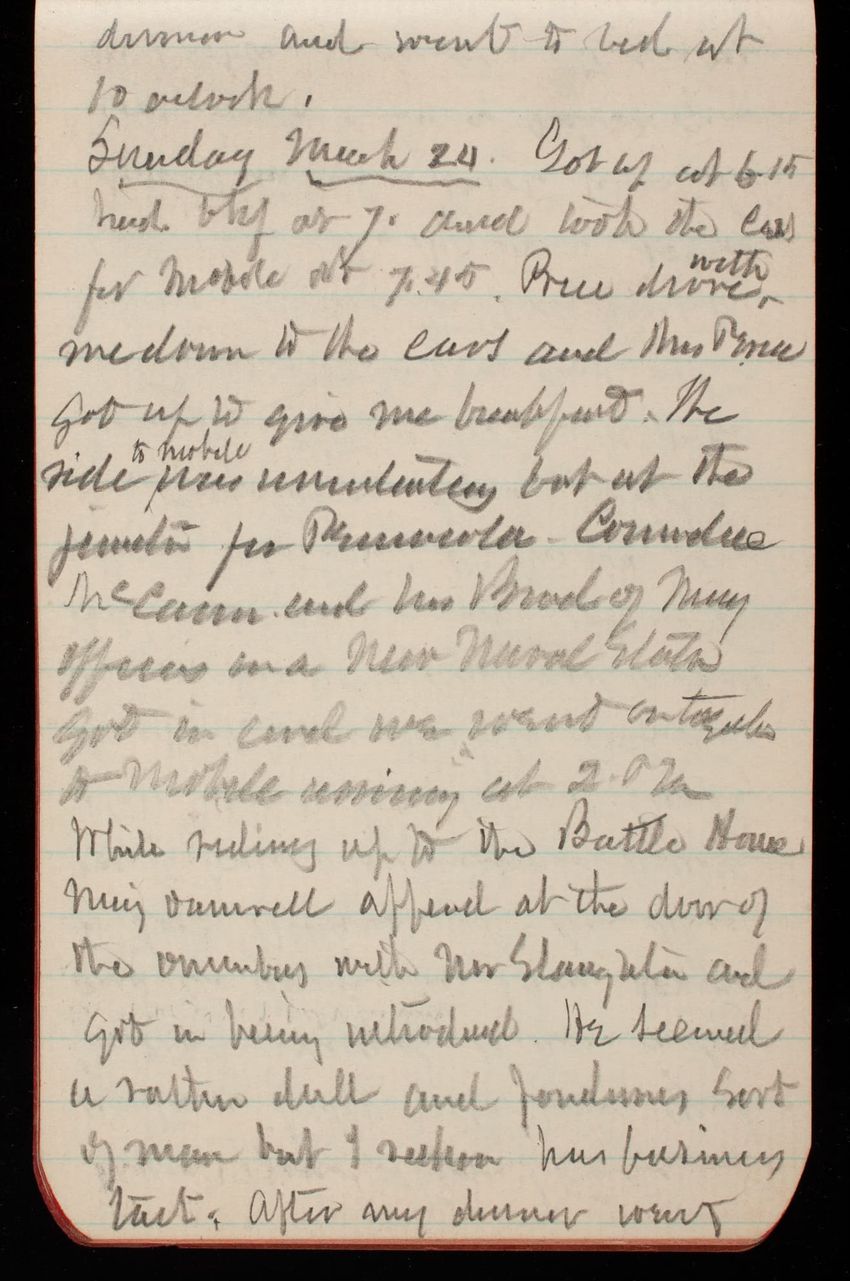 dinner and went to bed at
10 oclock.
Sunday March 24. Got up at 6 15
had bkf at 7. and took the cars
for Mobile at 7.45. Price drove with
me down to the cars and Mrs Price
got up to give me breakfast. The
ride to mobile was but at the
junction for Pensacola - Comodore
McCann and his Board of Navy
officers on a New Naval Station
got in and we went on together
to Mobile arriving at 2. P M
While riding up to the Battle House
Maj Damrell appeared at the door of
the omnibus with Mr Slaughter and
got in being introduced. He seemed
a rather dull and sort
of man but I reckon has business
tact. After my dinner went